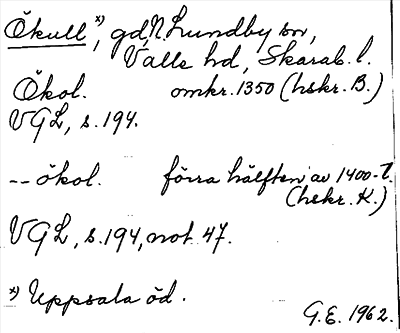 Ökull *), gd, N. Lundby sn,
Valle hd, Skarab. l.
Ökol. omkr. 1350 (hskr. B.)
VGL, s. 194.
-- ökol. förra hälften av 1400-t.
(hskr. K.)
VGL, s. 194, not 47.
*) Uppsala öd.
G.E. 1962.